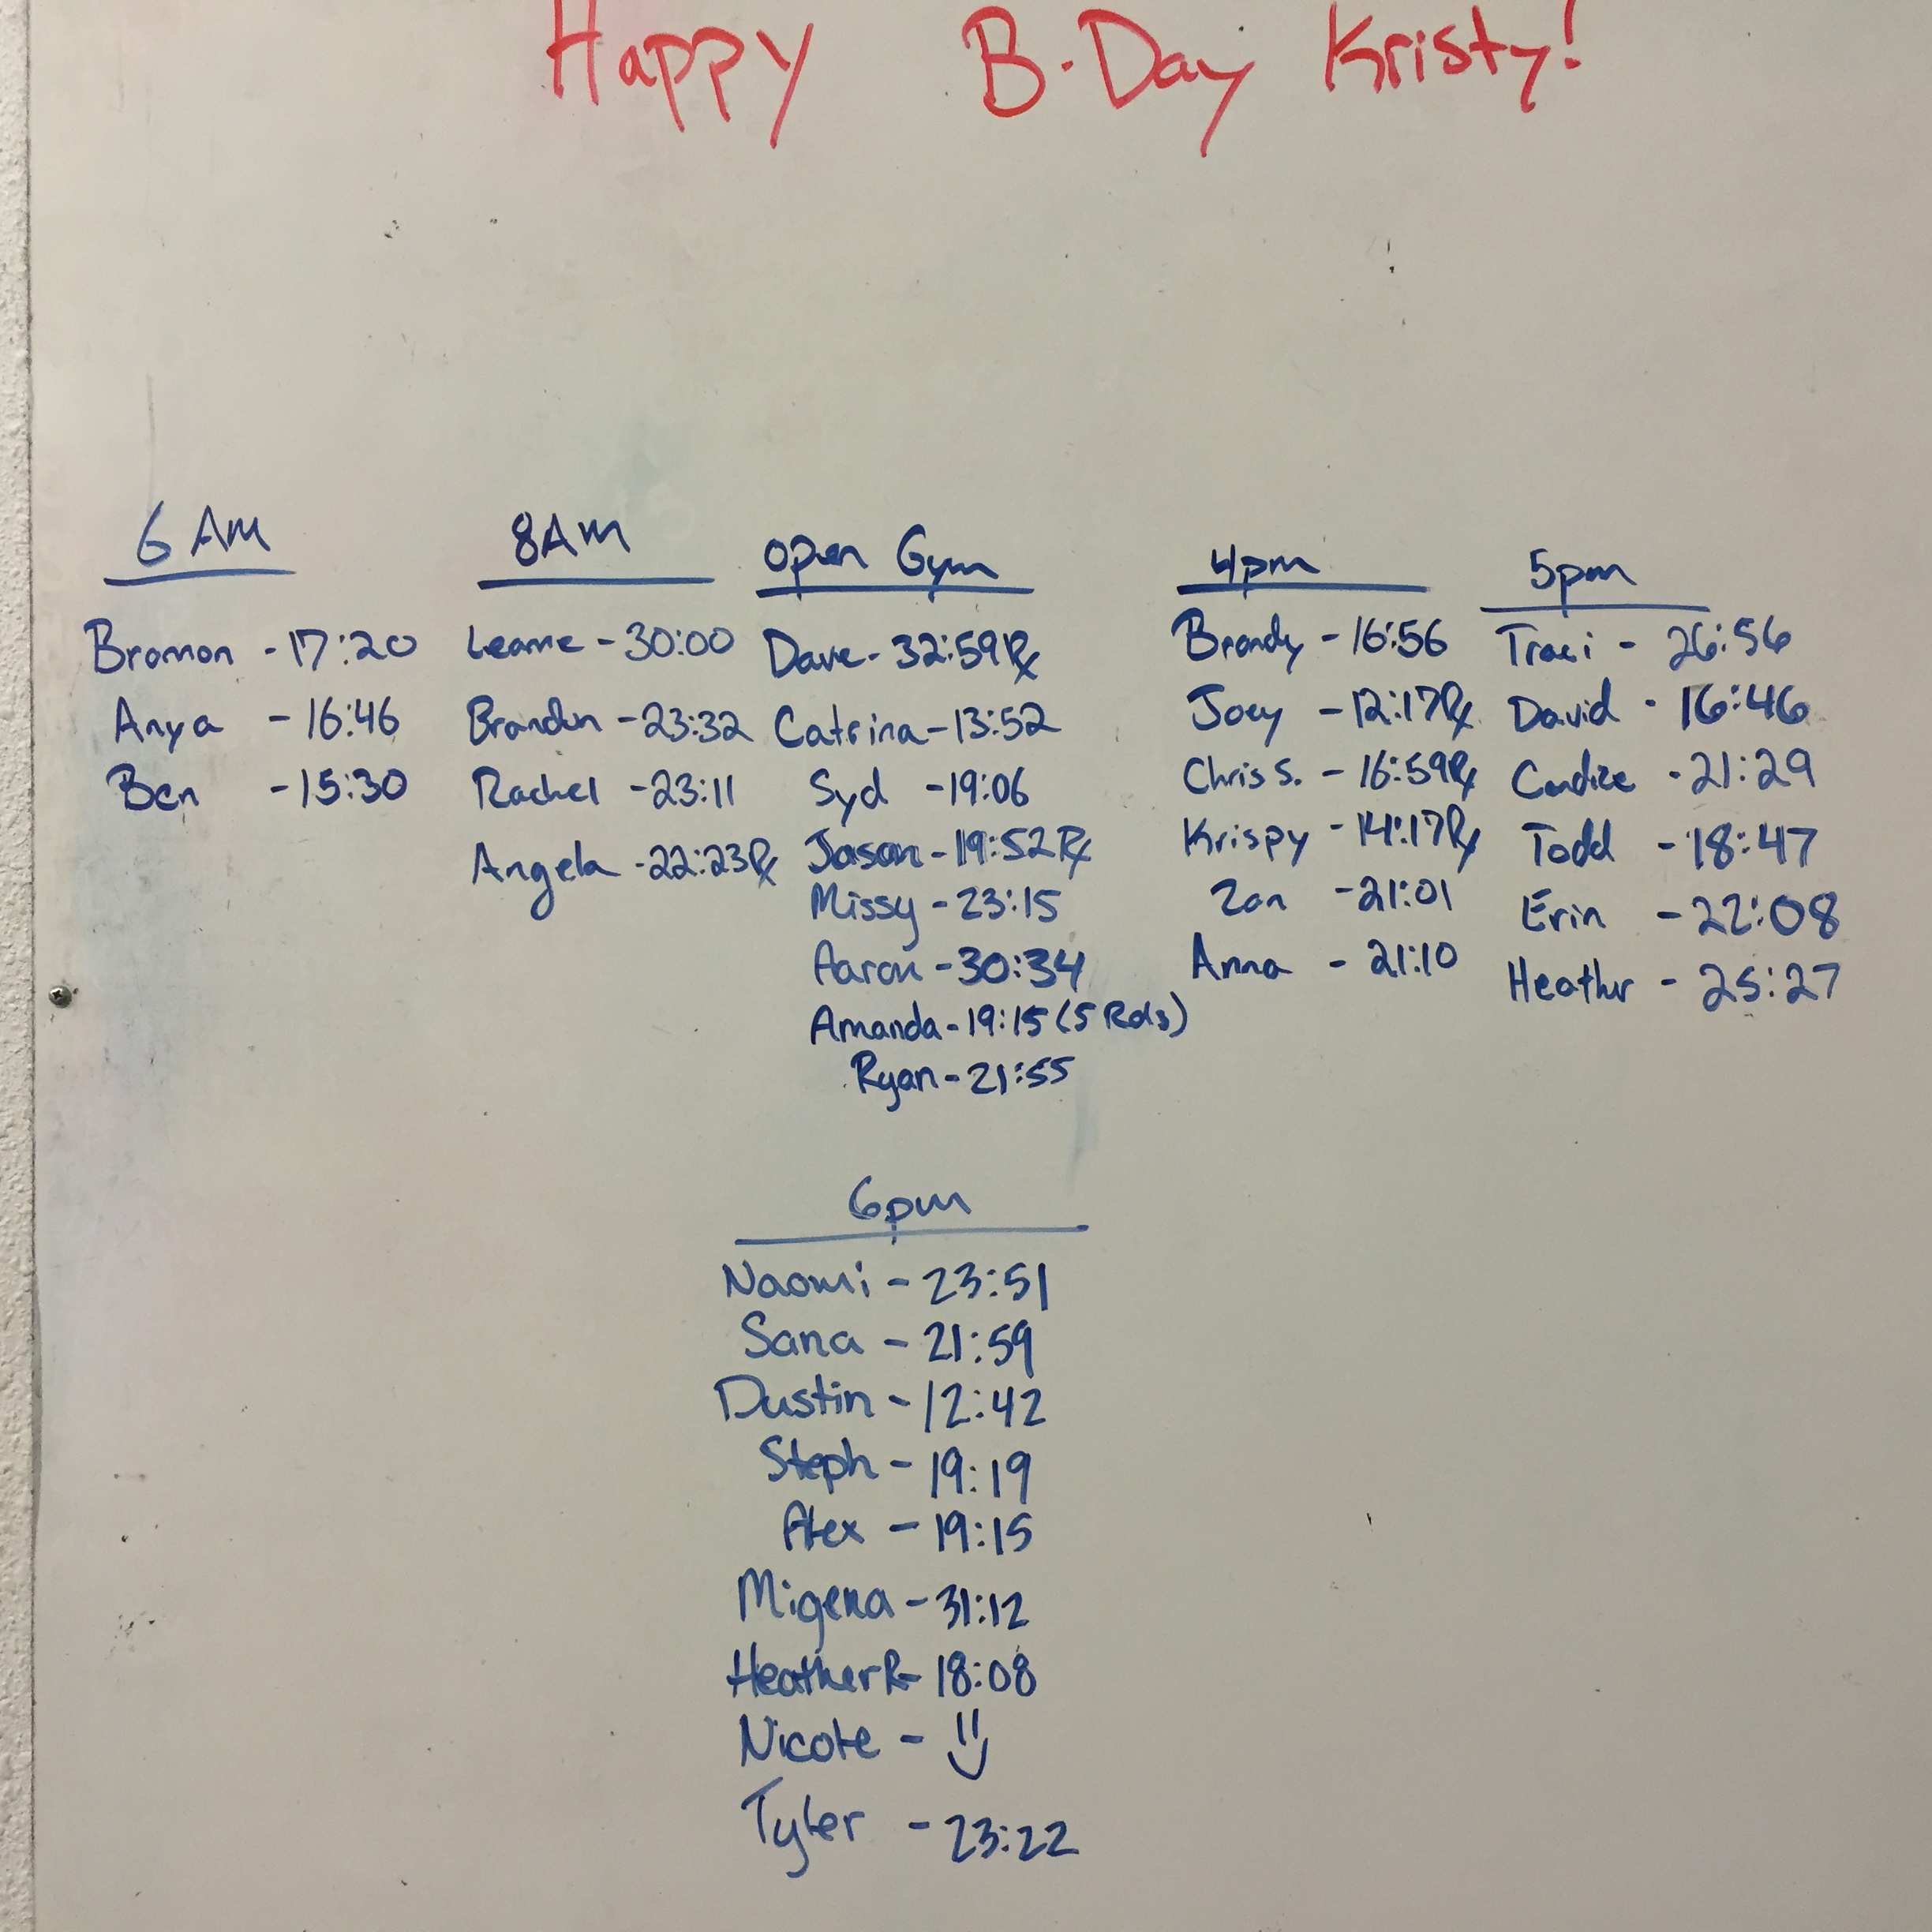 Happy B-Day Kristy!
6 AM
Bromon - 17:20
Anya - 16:46
Ben - 15:30
8AM
Leanne - 30:00
Brandon - 23:32
Rachel - 23:11
Angela - 22:23 Rx
Open Gym
Dave - 32:59 Rx
Catrina - 13:52
Syd - 19:06
Jason - 19:52 Rx
Missy - 23:15
Aaron - 30:34
Amanda - 19:15 (5 Rds)
Ryan - 21:55
4pm
Brandy - 16:56
Joey - 12:17 Rx
Chris S. - 16:59 Rx
Krispy - 14:17 Rx
Zan - 21:01
Anna - 21:10
5pm
Traci - 26:56
David - 16:46
Candice - 21:29
Todd - 18:47
Erin - 22:08
Heather - 25:27
6pm
Naomi - 23:51
Sana - 21:59
Dustin - 12:42
Steph - 19:19
Alex - 19:15
Migena - 31:12
Heather R - 18:08
Nicole - 
Tyler - 23:22